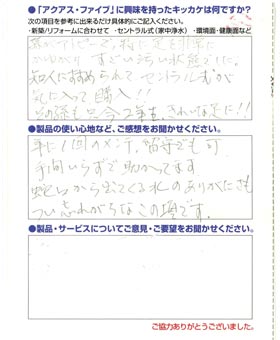 ●「アクアス・ファイブ」に興味を持ったキッカケは何ですか?
次の項目を参考に出来るだけ具体的にご記入ください。
・新築/リフォームに合わせて ・セントラル式(家中浄水) ・環境面・健康面など
すごい汚い状態でした。
知人に勧められて セントラル式が
気に入って購入!!
きれいな足に!!
●製品の使い心地など、ご感想をお聞かせください。
年に1回のメンテ、留守でも可
手間いらずで助かってます
蛇口から出てくる水のありがたさも
つい忘れがちなこの頃です。
●製品・サービスについてご意見・ご要望をお聞かせください。
ご協力ありがとうございました。